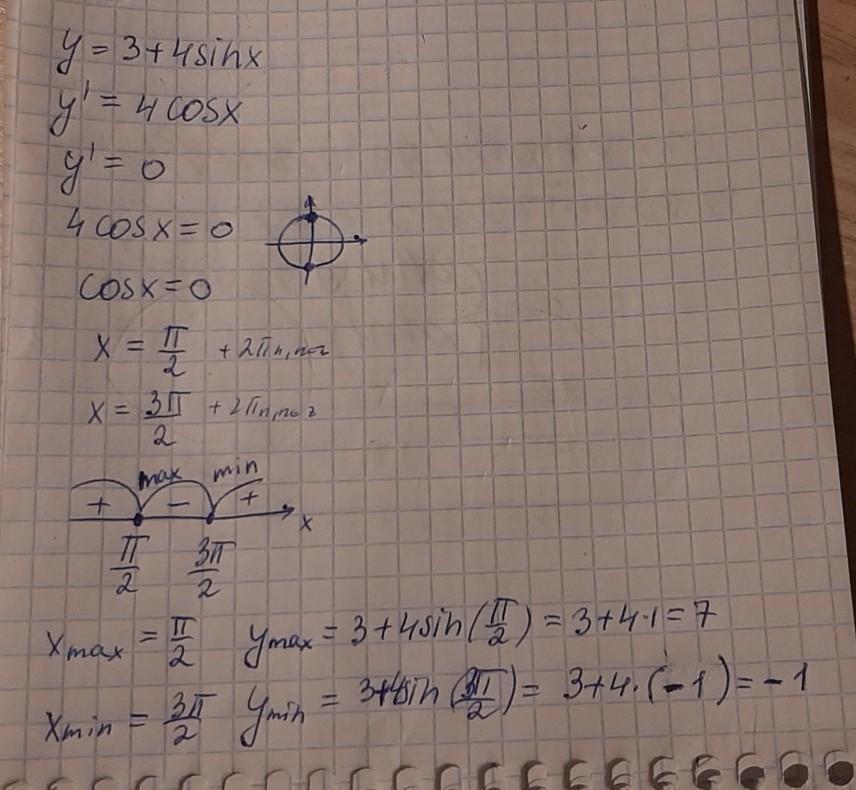 y = 3+4sinx
y' = 4cosx
y' = 0
4cosx = 0
cosx = 0
x = π/2 + 2πn, n∈z
x = 3π/2 + 2πn, n∈z
max min
+ − +
x
π/2 3π/2
xmax = π/2 ymax = 3+4sin(π/2) = 3+4·1 = 7
xmin = 3π/2 ymin = 3+4sin(3π/2) = 3+4·(-1) = -1